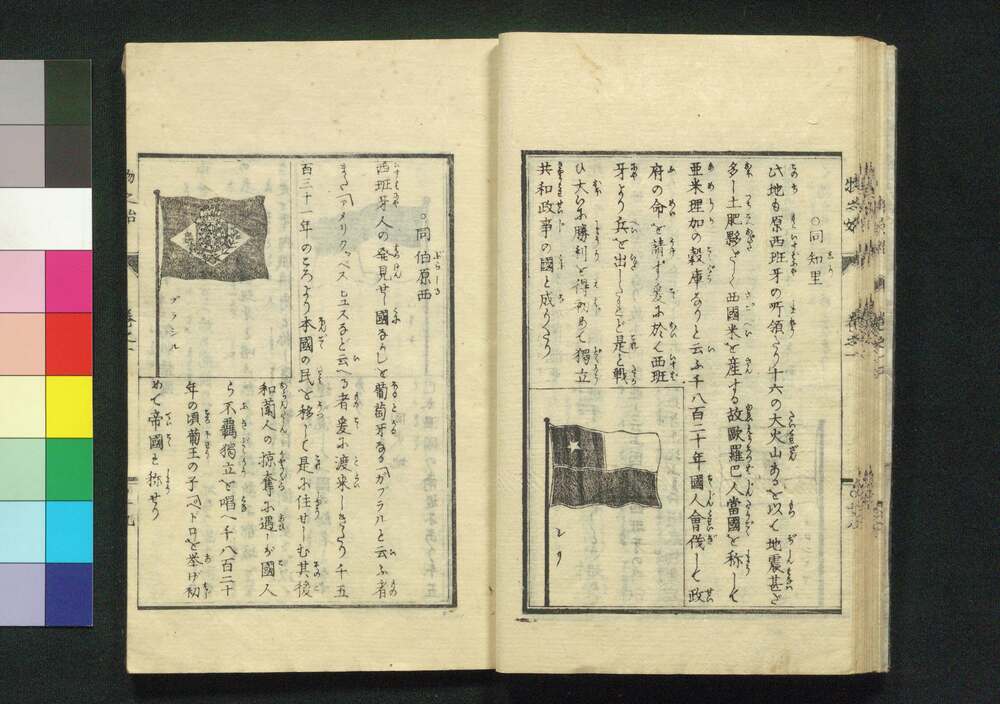 ○同 知里
此地も原西班牙の所領たり十六の大火山あるを以て地震甚だ
多し土肥夥しく西國米を産する故歐羅巴人當國を称して
亜米理加の穀庫なりと云ふ千八百二十年國人會議して政
府の命を請ず爰に於て西班
牙より兵を出したれども是と戦
ひ大いに勝利を得初めて獨立
共和政事の國と成りたり
チリ
○同 伯原西
西班牙人の発見せし國なりしを葡萄牙なる「カブラル」と云ふ者
また「アメリクッペスピュス」など云へる者爰に渡来しきたり千五
百三十一年のころより本國の民を移して是に住せしむ其後
和蘭人の掠奪に遇しが國人
ら不羈獨立を唱へ千八百二十
年の頃葡王の子「ペトロ」を挙げ初
めて帝國と称せり
ブラシル